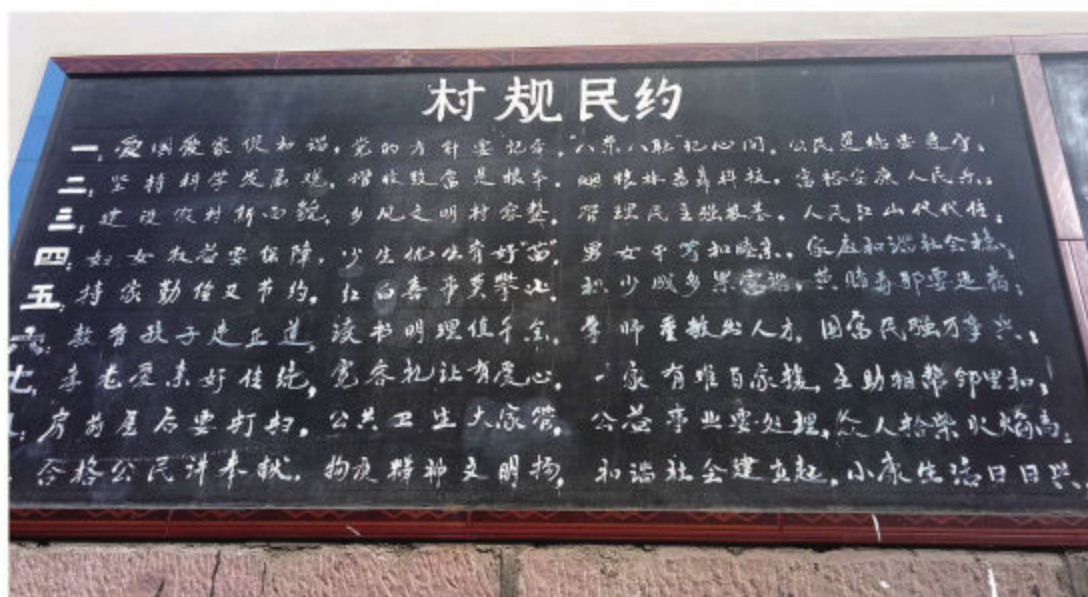 村规民约
一、爱国爱家促和谐，党的方针要记牢，“八荣八耻”记心间，公民道德要遵守；
二；坚持科学发展观，增收致富是根本，林畜靠科技，富裕安康人民乐；
三；建设农村新面貌，乡风文明村容整，管理民主强基基，人民江山代代传；
四；妇女权益要保障，少生优生有好“苗”，男女平等和睦亲，家庭和谐社会稳；
五，持家勤俭又节约，红白喜事莫攀比，积少成多果，黄赌毒邪要远离；
六；教育孩子走正道，读书明理值千金，尊师重教出人才，国富民强万事兴；
七，孝老爱亲好传统，宽容礼让有爱心，一家有难百家援，互助相帮邻里和；
房前屋后要打扫，公共卫生大家管，公益事业要处理，众人拾柴火焰高；
合格公民讲奉献，精神文明扬，和谐社会建立起，小康生活日日兴